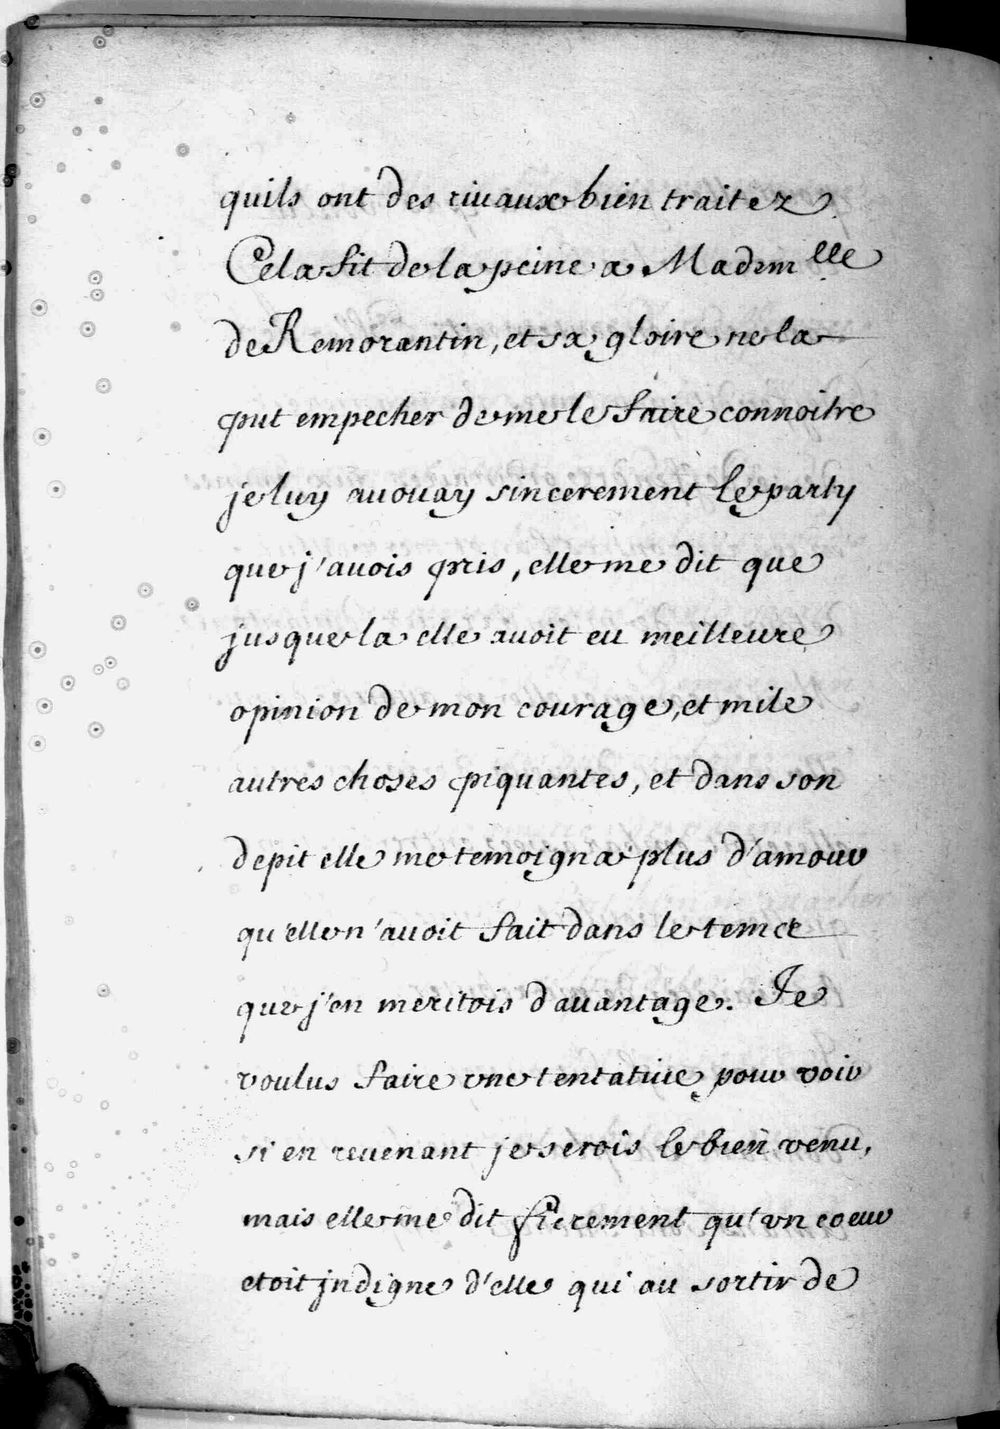 quils ont des riuaux bien traitez
Cela fit de la peine a Madem lle
de Remorantin, et sa gloire ne la
put empecher de me le faire connoitre
je luy auouay sincerement le party
que j'auois pris, elle me dit que
jusque la elle auoit eu meilleure
opinion de mon courage, et mile
autres choses piquantes, et dans son
depit elle me temoigna plus d'amour
qu'elle n'auoit fait dans le temce
que j'en meritois d'auantage. Je
voulus faire vne tentatiue pour voir
si en reuenant je serois le bien venu,
mais elle me dit fierement qu'vn coeur
etoit jndigne d'elle qui au sortir de